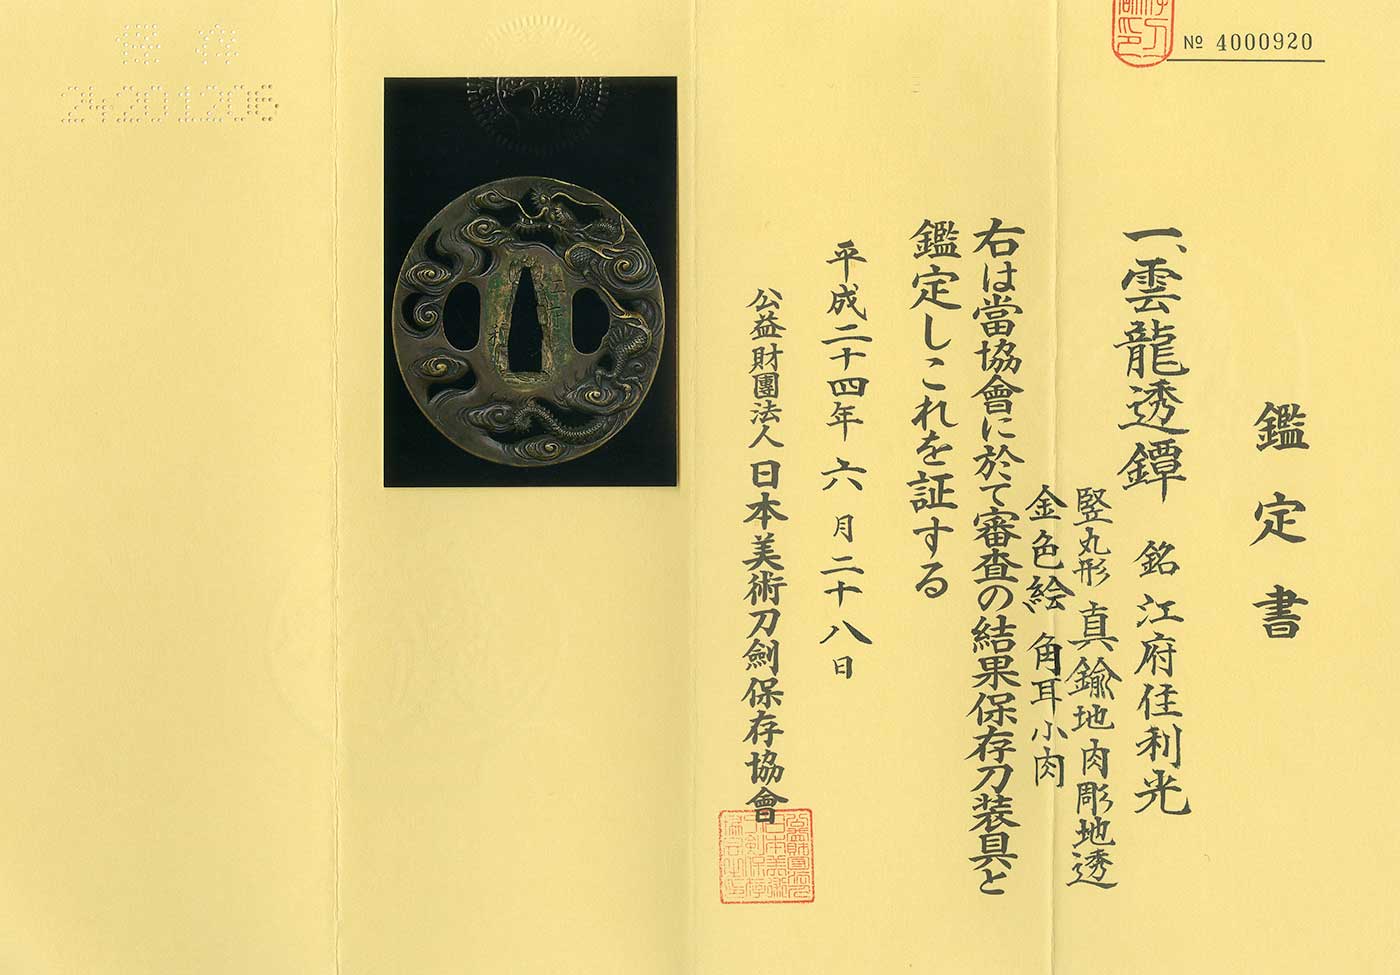 No 4000920
鑑定書
一、雲龍透鐔 銘 江府住利光
竪丸形 真鍮地 肉彫地透
金色絵 角耳小肉
右は當協會に於て審査の結果保存刀装具と
鑑定しこれを証する
平成二十四年 六月二十八日
公益財團法人 日本美術刀劍保存協會
保存
24201206